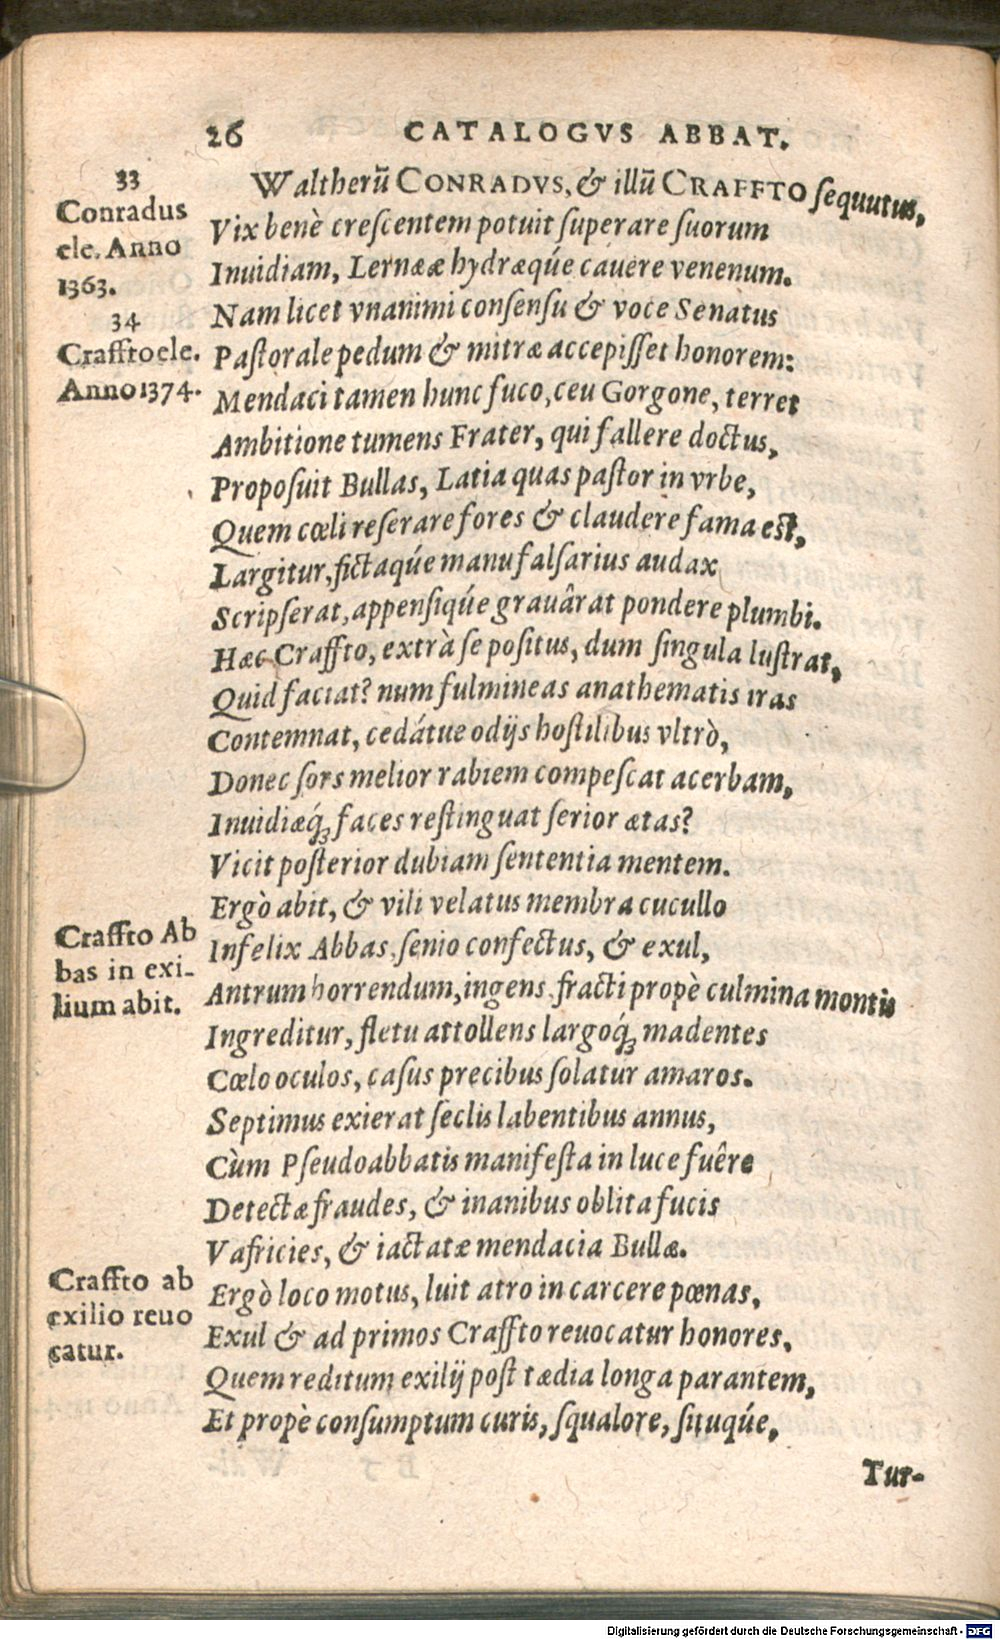 26 CATALOGVS ABBAT.
33
Conradus
ele. Anno
1363.
34
Craffto ele.
Anno 1374.
Waltherū CONRADVS, & illū CRAFFTO ſequutus,
Vix benè creſcentem potuit ſuperare ſuorum
Inuidiam, Lernææ hydræqúe cauere venenum.
Nam licet vnanimi conſenſu & voce Senatus
Paſtorale pedum & mitræ accepiſſet honorem:
Mendaci tamen hunc fuco, ceu Gorgone, terret
Ambitione tumens Frater, qui fallere doctus,
Propoſuit Bullas, Latia quas paſtor in vrbe,
Quem cœli reſerare fores & claudere fama est,
Largitur, fictaqúe manu falſarius audax
Scripſerat, appenſiqúe grauârat pondere plumbi.
Hæc Craffto, extrà ſe poſitus, dum ſingula luſtrat,
Quid faciat? num fulmineas anathematis iras
Contemnat, cedátue odijs hoſtilibus vltrò,
Donec ſors melior rabiem compeſcat acerbam,
Inuidiæq́; faces reſtinguat ſerior ætas?
Vicit poſterior dubiam ſententia mentem.
Ergò abit, & vili velatus membra cucullo
Craffto Ab
bas in exi-
lium abit.
Infelix Abbas, ſenio confectus, & exul,
Antrum horrendum, ingens, fracti propè culmina montis
Ingreditur, fletu attollens largoq́; madentes
Cœlo oculos, caſus precibus ſolatur amaros.
Septimus exierat ſeclis labentibus annus,
Cùm Pſeudoabbatis manifeſta in luce fuêre
Detectæ fraudes, & inanibus oblita fucis
Vafricies, & iactatæ mendacia Bullæ.
Craffto ab
exilio reuo
catur.
Ergò loco motus, luit atro in carcere pœnas,
Exul & ad primos Craffto reuocatur honores,
Quem reditum exilij poſt tædia longa parantem,
Et propè conſumptum curis, ſqualore, ſituqúe,
Tur-
Digitalisierung gefördert durch die Deutsche Forschungsgemeinschaft - DFG